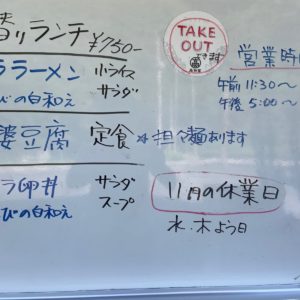 ランチ ¥750-
ラーメン 小ライス
びの白和え サラダ
婆豆腐 定食 ※担々麺あります
ラ卵丼 サラダ
びの白和え スープ
TAKE
OUT
できます
営業時
午前 11:30〜
午後 5:00〜
11月の休業日
水・木よう日